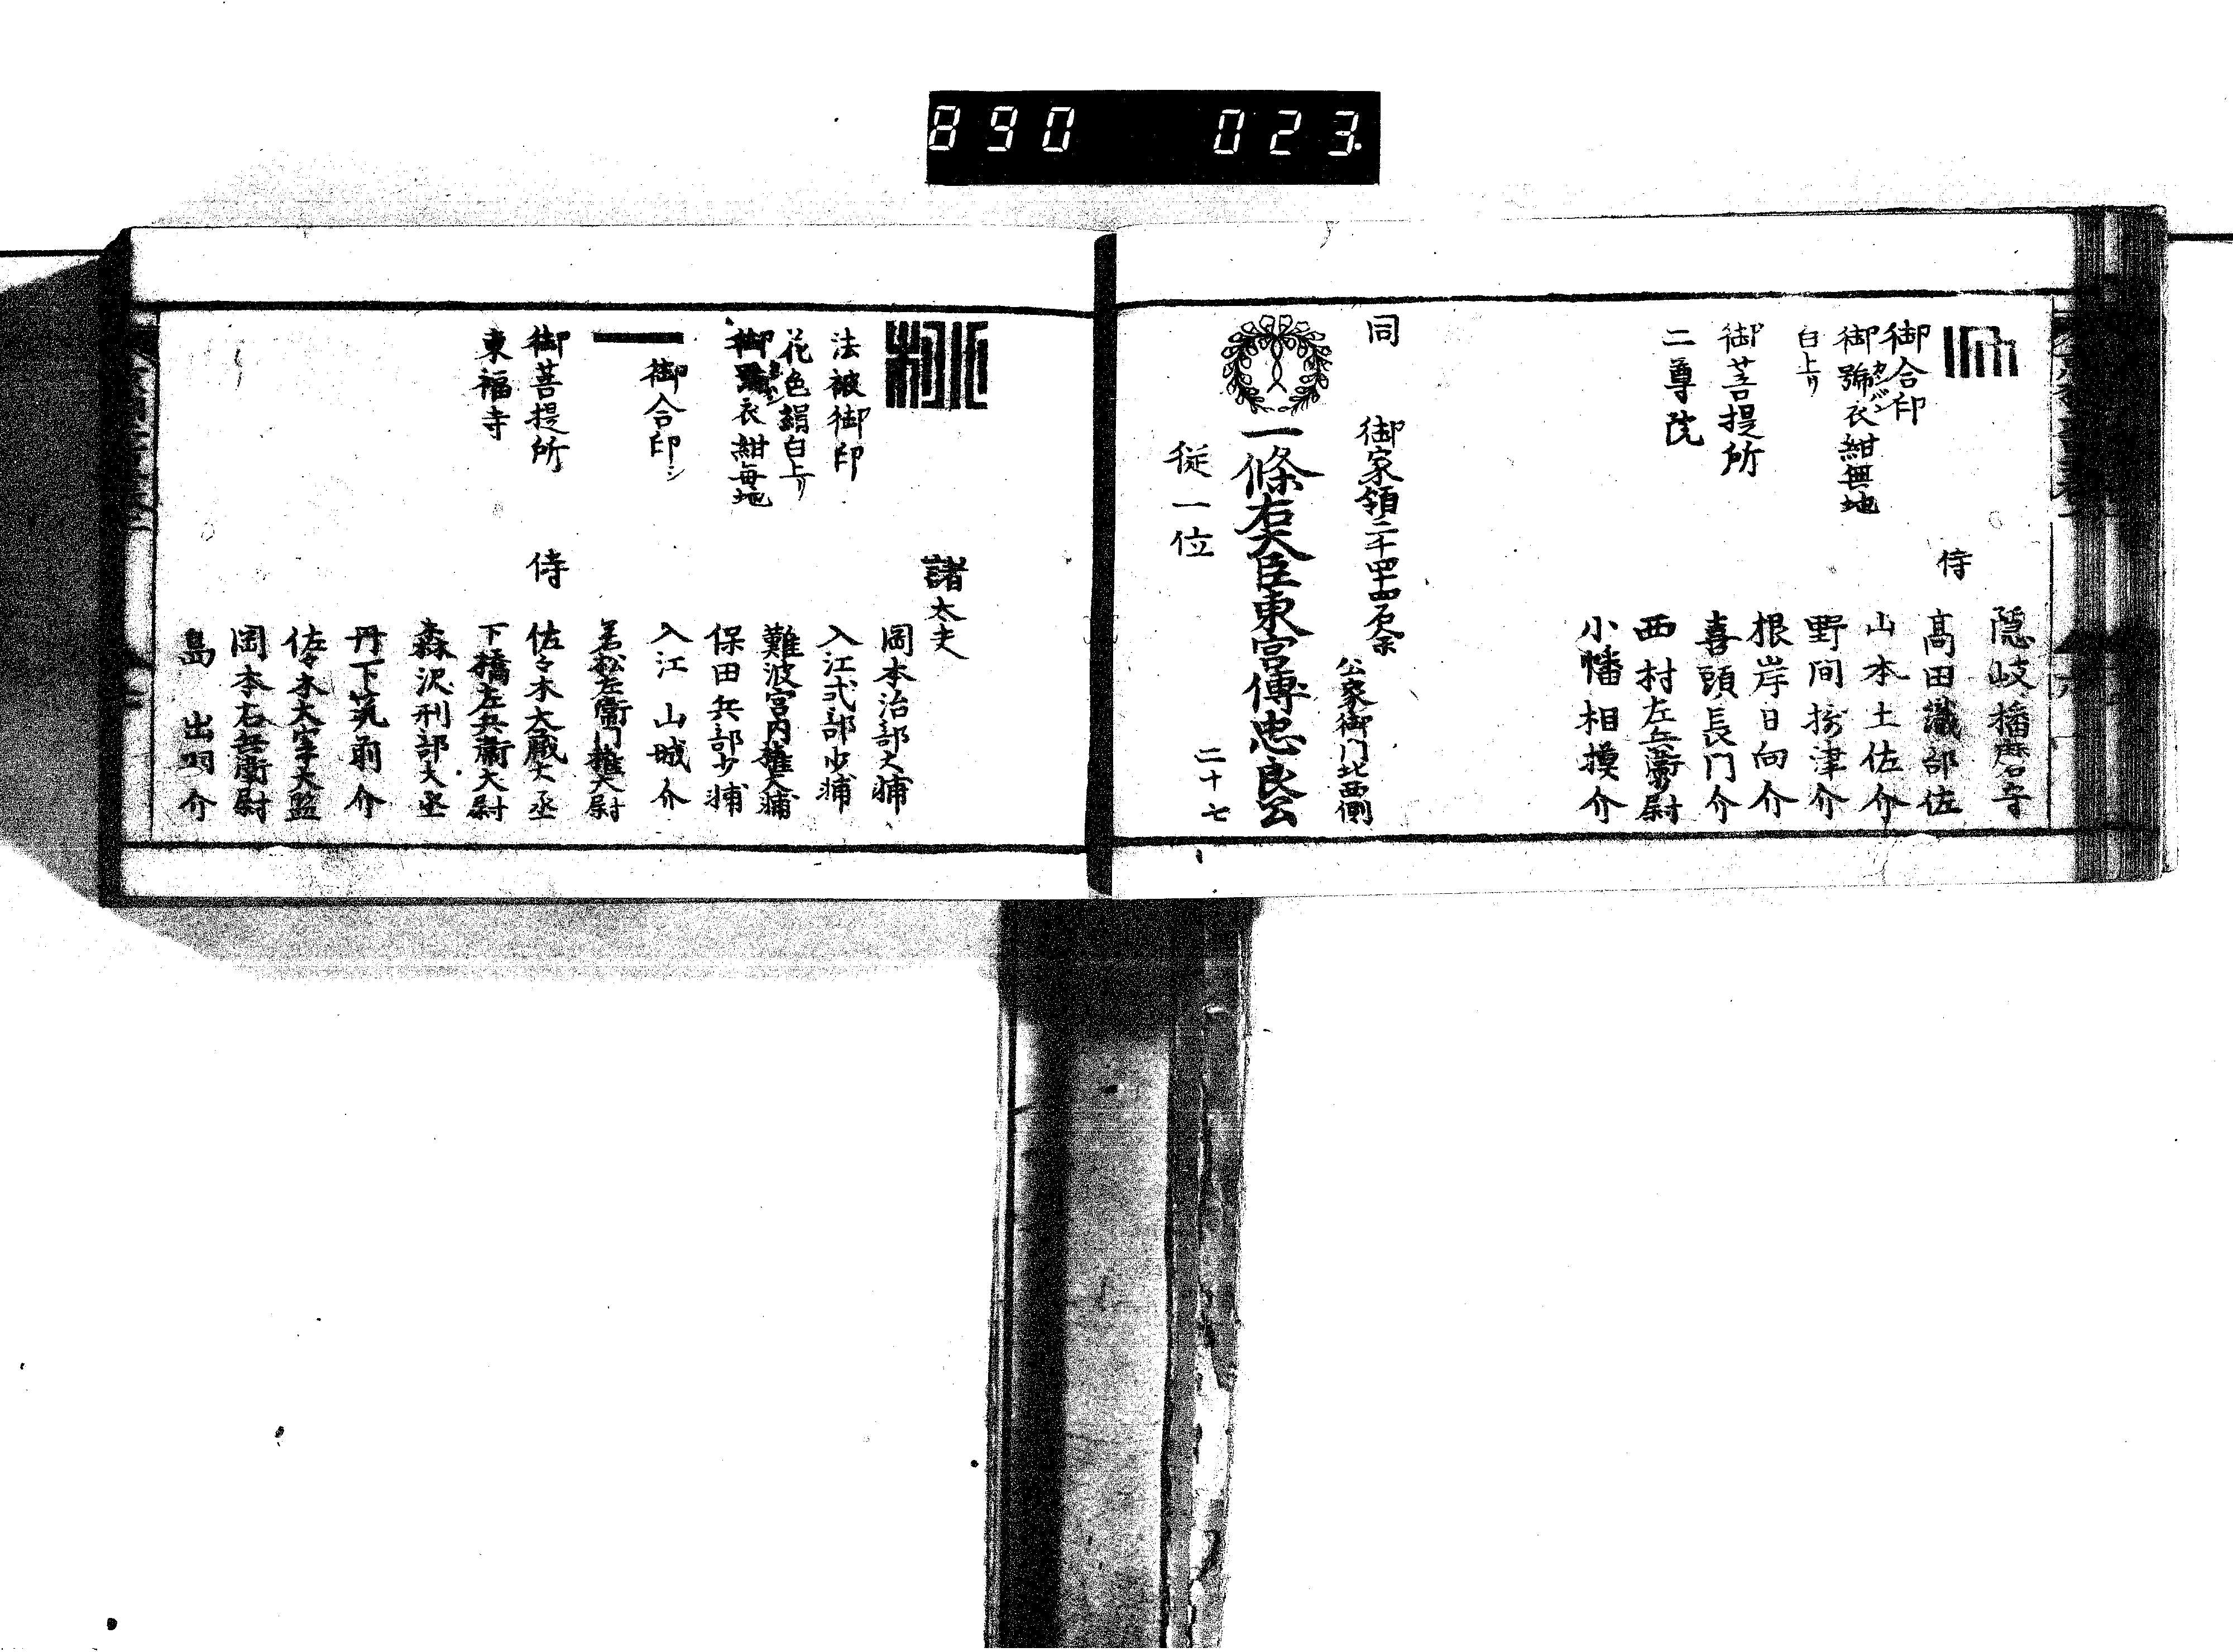 890 023
隠岐播磨守
侍
高田織部佐
山本土佐介
野間摂津介
根岸日向介
喜頭長門介
西村左兵衛少尉
小幡相摸介
御合印
御號衣紺無地
カンバン
白上リ
御菩提所
二尊院
同
御家領二千四十四石余
公家御門北西側
一條右大臣東宮傅忠良公
二十七
従一位
諸太夫
岡本治部大輔
入江式部少輔
難波宮内権大輔
保田兵部少輔
入江山城介
若松左衛門権大尉
法被御印
花色絹白上リ
御號衣紺無地
御合印
御菩提所
東福寺
侍
佐々木大蔵大丞
下橋左兵衛大尉
森沢刑部大丞
丹下筑前介
佐々木大宰大監
岡本右兵衛尉
島出羽介